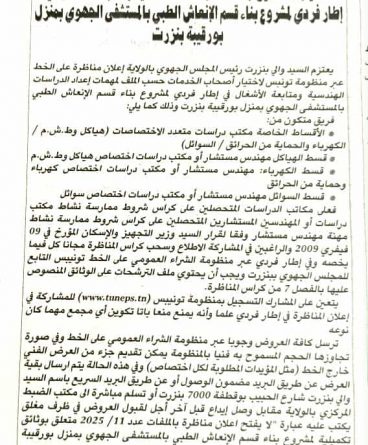 إطار فردي لمشروع بناء قسم الإنعاش الطبي بالمستشفى الجهوي بمنزل
بورقيبة بنزرت
يعتزم السيد والي بنزرت رئيس المجلس الجهوي بالولاية إعلان مناظرة على الخط
عبر منظومة تونيبس لاختيار أصحاب الخدمات حسب الملف لمهمات إعداد الدراسات
الهندسية ومتابعة الأشغال في إطار فردي مشروع بناء قسم الإنعاش الطبي
بالمستشفى الجهوي بمنزل بورقيبة بنزرت وذلك كما يلي:
فريق متكون من:
● الأقساط الخاصة مكتب دراسات متعدد الاختصاصات (هياكل وط.ش.م /
الكهرباء والحماية من الحرائق / السوائل)
● قسط الهياكل مهندس مستشار أو مكتب دراسات اختصاص هياكل وط.ش.م
● قسط الكهرباء: مهندس مستشار أو مكتب دراسات اختصاص كهرباء
وحماية من الحرائق
● قسط السوائل مهندس مستشار أو مكتب دراسات اختصاص سوائل
فعلى مكاتب الدراسات المتحصلين على كراس شروط ممارسة نشاط مكتب
دراسات أو المهندسين المستشارين المتحصلين على كراس شروط ممارسة نشاط
مهنة مهندس مستشار وفقا لقرار السيد وزير التجهيز والإسكان المؤرخ في 09
فيفري 2009 والراغبين في المشاركة الاطلاع وسحب كراس المناظرة مجانا كل فيما
يخصه وفي إطار فردي عبر منظومة الشراء العمومي على الخط تونيبس التابع
للمجلس الجهوي ببنزرت ويجب أن يحتوي ملف الترشحات على الوثائق المنصوص
عليها بالفصل 7 من كراس المناظرة.
يتعين على المشارك التسجيل بمنظومة تونيبس (www.tuneps.tn) للمشاركة في
إعلان المناظرة في إطار فردي علما وأنه يمنع منعا باتا تكوين أي مجمع مهما كان
نوعه
ترسل كافة العروض وجوبا عبر منظومة الشراء العمومي على الخط وفي صورة
تجاوزها الحجم المسموح به فنيا بالمنظومة يمكن تقديم جزء من العرض الفني
خارج الخط (مثل المؤيدات المطلوبة لكل اختصاص) وفي هذه الحالة يتم ارسال بقية
العرض عن طريق البريد مضمون الوصول أو عن طريق البريد السريع باسم السيد
والي بنزرت شارع الحبيب بوقطفة 7000 بنزرت أو تسلم مباشرة الى مكتب الضبط
المركزي بالولاية مقابل وصل إيداع قبل آخر أجل لقبول العروض في ظرف مغلق
يكتب عليه عبارة "لا يفتح اعلان مناظرة بالملفات عدد 11/ 2025 متعلق بوثائق
تكميلية لمشروع بناء قسم الإنعاش الطبي بالمستشفى الجهوي بمنزل بورقيبة